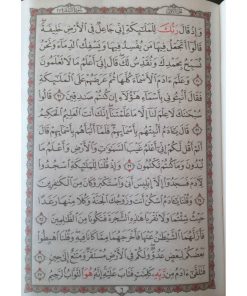 وَإِذْ قَالَ رَبُّكَ لِلْمَلَٰٓئِكَةِ إِنِّى جَاعِلٌ فِى ٱلْأَرْضِ خَلِيفَةً
قَالُوٓا۟ أَتَجْعَلُ فِيهَا مَن يُفْسِدُ فِيهَا وَيَسْفِكُ ٱلدِّمَآءَ وَنَحْنُ
نُسَبِّحُ بِحَمْدِكَ وَنُقَدِّسُ لَكَ قَالَ إِنِّىٓ أَعْلَمُ مَا لَا تَعْلَمُونَ
٣٠ وَعَلَّمَ ءَادَمَ ٱلْأَسْمَآءَ كُلَّهَا ثُمَّ عَرَضَهُمْ عَلَى ٱلْمَلَٰٓئِكَةِ
فَقَالَ أَنۢبِـُٔونِى بِأَسْمَآءِ هَٰٓؤُلَآءِ إِن كُنتُمْ صَٰدِقِينَ ٣١ قَالُوا۟
سُبْحَٰنَكَ لَا عِلْمَ لَنَآ إِلَّا مَا عَلَّمْتَنَآ إِنَّكَ أَنتَ ٱلْعَلِيمُ ٱلْحَكِيمُ
٣٢ قَالَ يَٰٓـَٔادَمُ أَنۢبِئْهُم بِأَسْمَآئِهِمْ فَلَمَّآ أَنۢبَأَهُم بِأَسْمَآئِهِمْ قَالَ
أَلَمْ أَقُل لَّكُمْ إِنِّىٓ أَعْلَمُ غَيْبَ ٱلسَّمَٰوَٰتِ وَٱلْأَرْضِ وَأَعْلَمُ مَا
تُبْدُونَ وَمَا كُنتُمْ تَكْتُمُونَ ٣٣ وَإِذْ قُلْنَا لِلْمَلَٰٓئِكَةِ ٱسْجُدُوا۟
لِـَٔادَمَ فَسَجَدُوٓا۟ إِلَّآ إِبْلِيسَ أَبَىٰ وَٱسْتَكْبَرَ وَكَانَ مِنَ ٱلْكَٰفِرِينَ
٣٤ وَقُلْنَا يَٰٓـَٔادَمُ ٱسْكُنْ أَنتَ وَزَوْجُكَ ٱلْجَنَّةَ وَكُلَا مِنْهَا رَغَدًا
حَيْثُ شِئْتُمَا وَلَا تَقْرَبَا هَٰذِهِ ٱلشَّجَرَةَ فَتَكُونَا مِنَ ٱلظَّٰلِمِينَ ٣٥
فَأَزَلَّهُمَا ٱلشَّيْطَٰنُ عَنْهَا فَأَخْرَجَهُمَا مِمَّا كَانَا فِيهِ وَقُلْنَا ٱهْبِطُوا۟
بَعْضُكُمْ لِبَعْضٍ عَدُوٌّ وَلَكُمْ فِى ٱلْأَرْضِ مُسْتَقَرٌّ وَمَتَٰعٌ إِلَىٰ حِينٍ ٣٦
فَتَلَقَّىٰٓ ءَادَمُ مِن رَّبِّهِۦ كَلِمَٰتٍ فَتَابَ عَلَيْهِ إِنَّهُۥ هُوَ ٱلتَّوَّابُ ٱلرَّحِيمُ ٣٧
٦